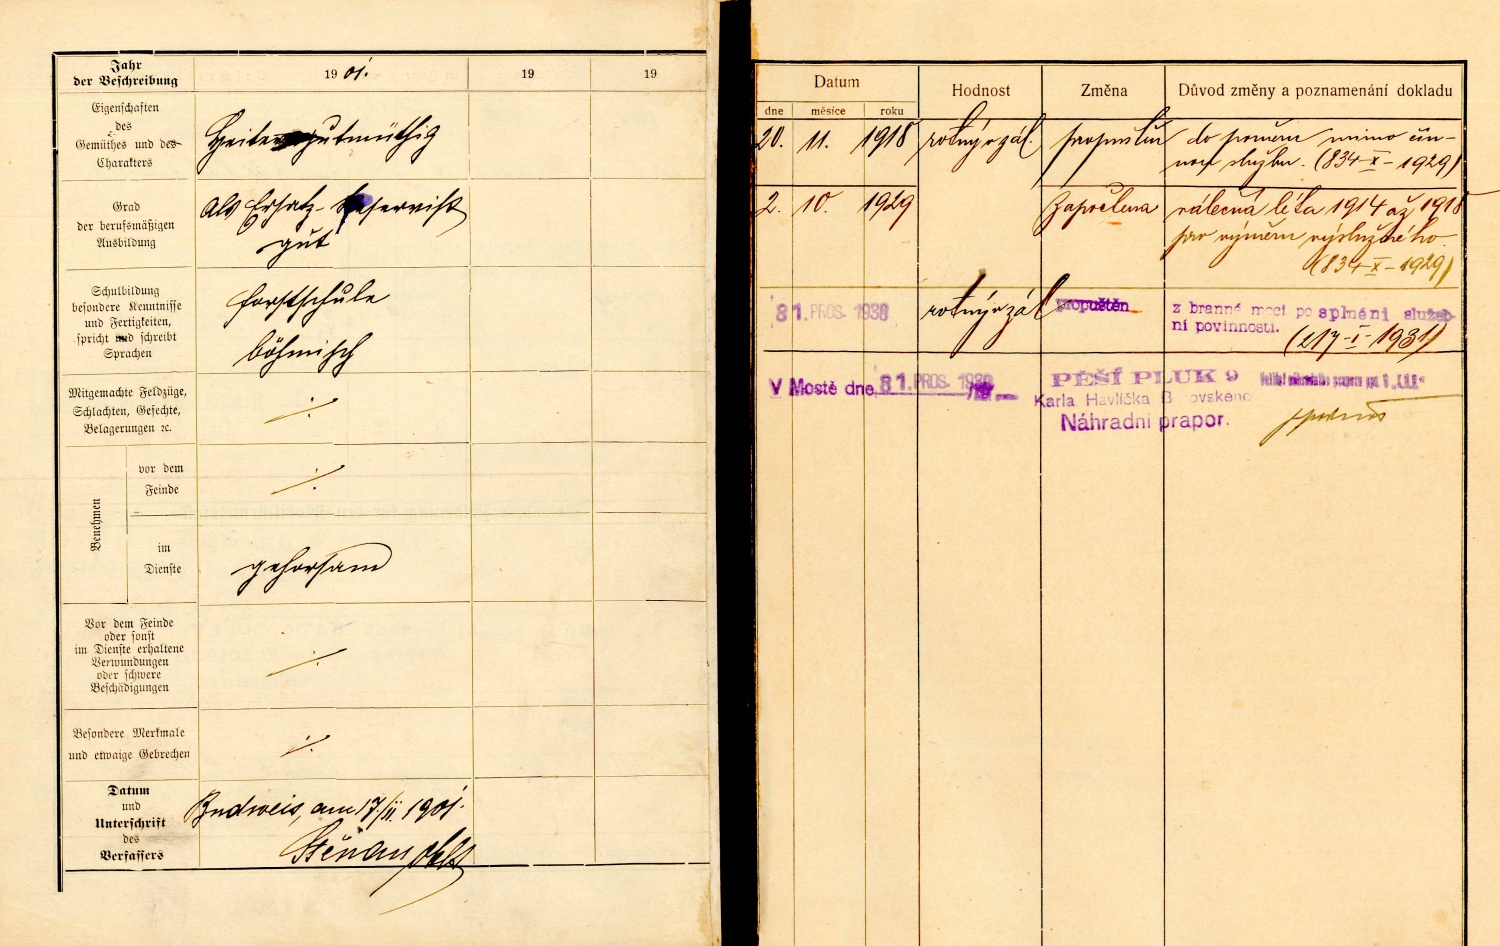 Jahr
der Beschreibung
1901.
19
19
Eigenschaften
des
Gemüthes und des
Charakters
Heiter gutmüthig
Grad
der berufsmäßigen
Ausbildung
Als Ersatz-Reservist
gut
Schulbildung
besondere Kenntnisse
und Fertigkeiten,
spricht und schreibt
Sprachen
Forstschule
böhmisch
Mitgemachte Feldzüge,
Schlachten, Gefechte,
Belagerungen ꝛc.
./.
Benehmen
vor dem
Feinde
./.
im
Dienste
gehorsam
Vor dem Feinde
oder sonst
im Dienste erhaltene
Verwundungen
oder schwere
Beschädigungen
./.
Besondere Merkmale
und etwaige Gebrechen
./.
Datum
und
Unterschrift
des
Verfassers
Budweis, am 17/II. 1901.
Datum
Hodnost
Změna
Důvod změny a poznamenání dokladu
dne
měsíce
roku
20. 11. 1918 rotný v zál. propuštěn do poměru mimo čin-
nou službu. (834-X-1929)
2. 10. 1929 Započtena válečná léta 1914 až 1918
pro výměru výslužného.
(834-X-1929)
31. PROS. 1930 rotný v zál propuštěn z branné moci po splnění služeb-
ní povinnosti.
(217-I-1931)
V Mostě dne 31. PROS. 1930
PĚŠÍ PLUK 9
Karla Havlíčka B ovského
Náhradní prapor.
Velitel náhradního praporu